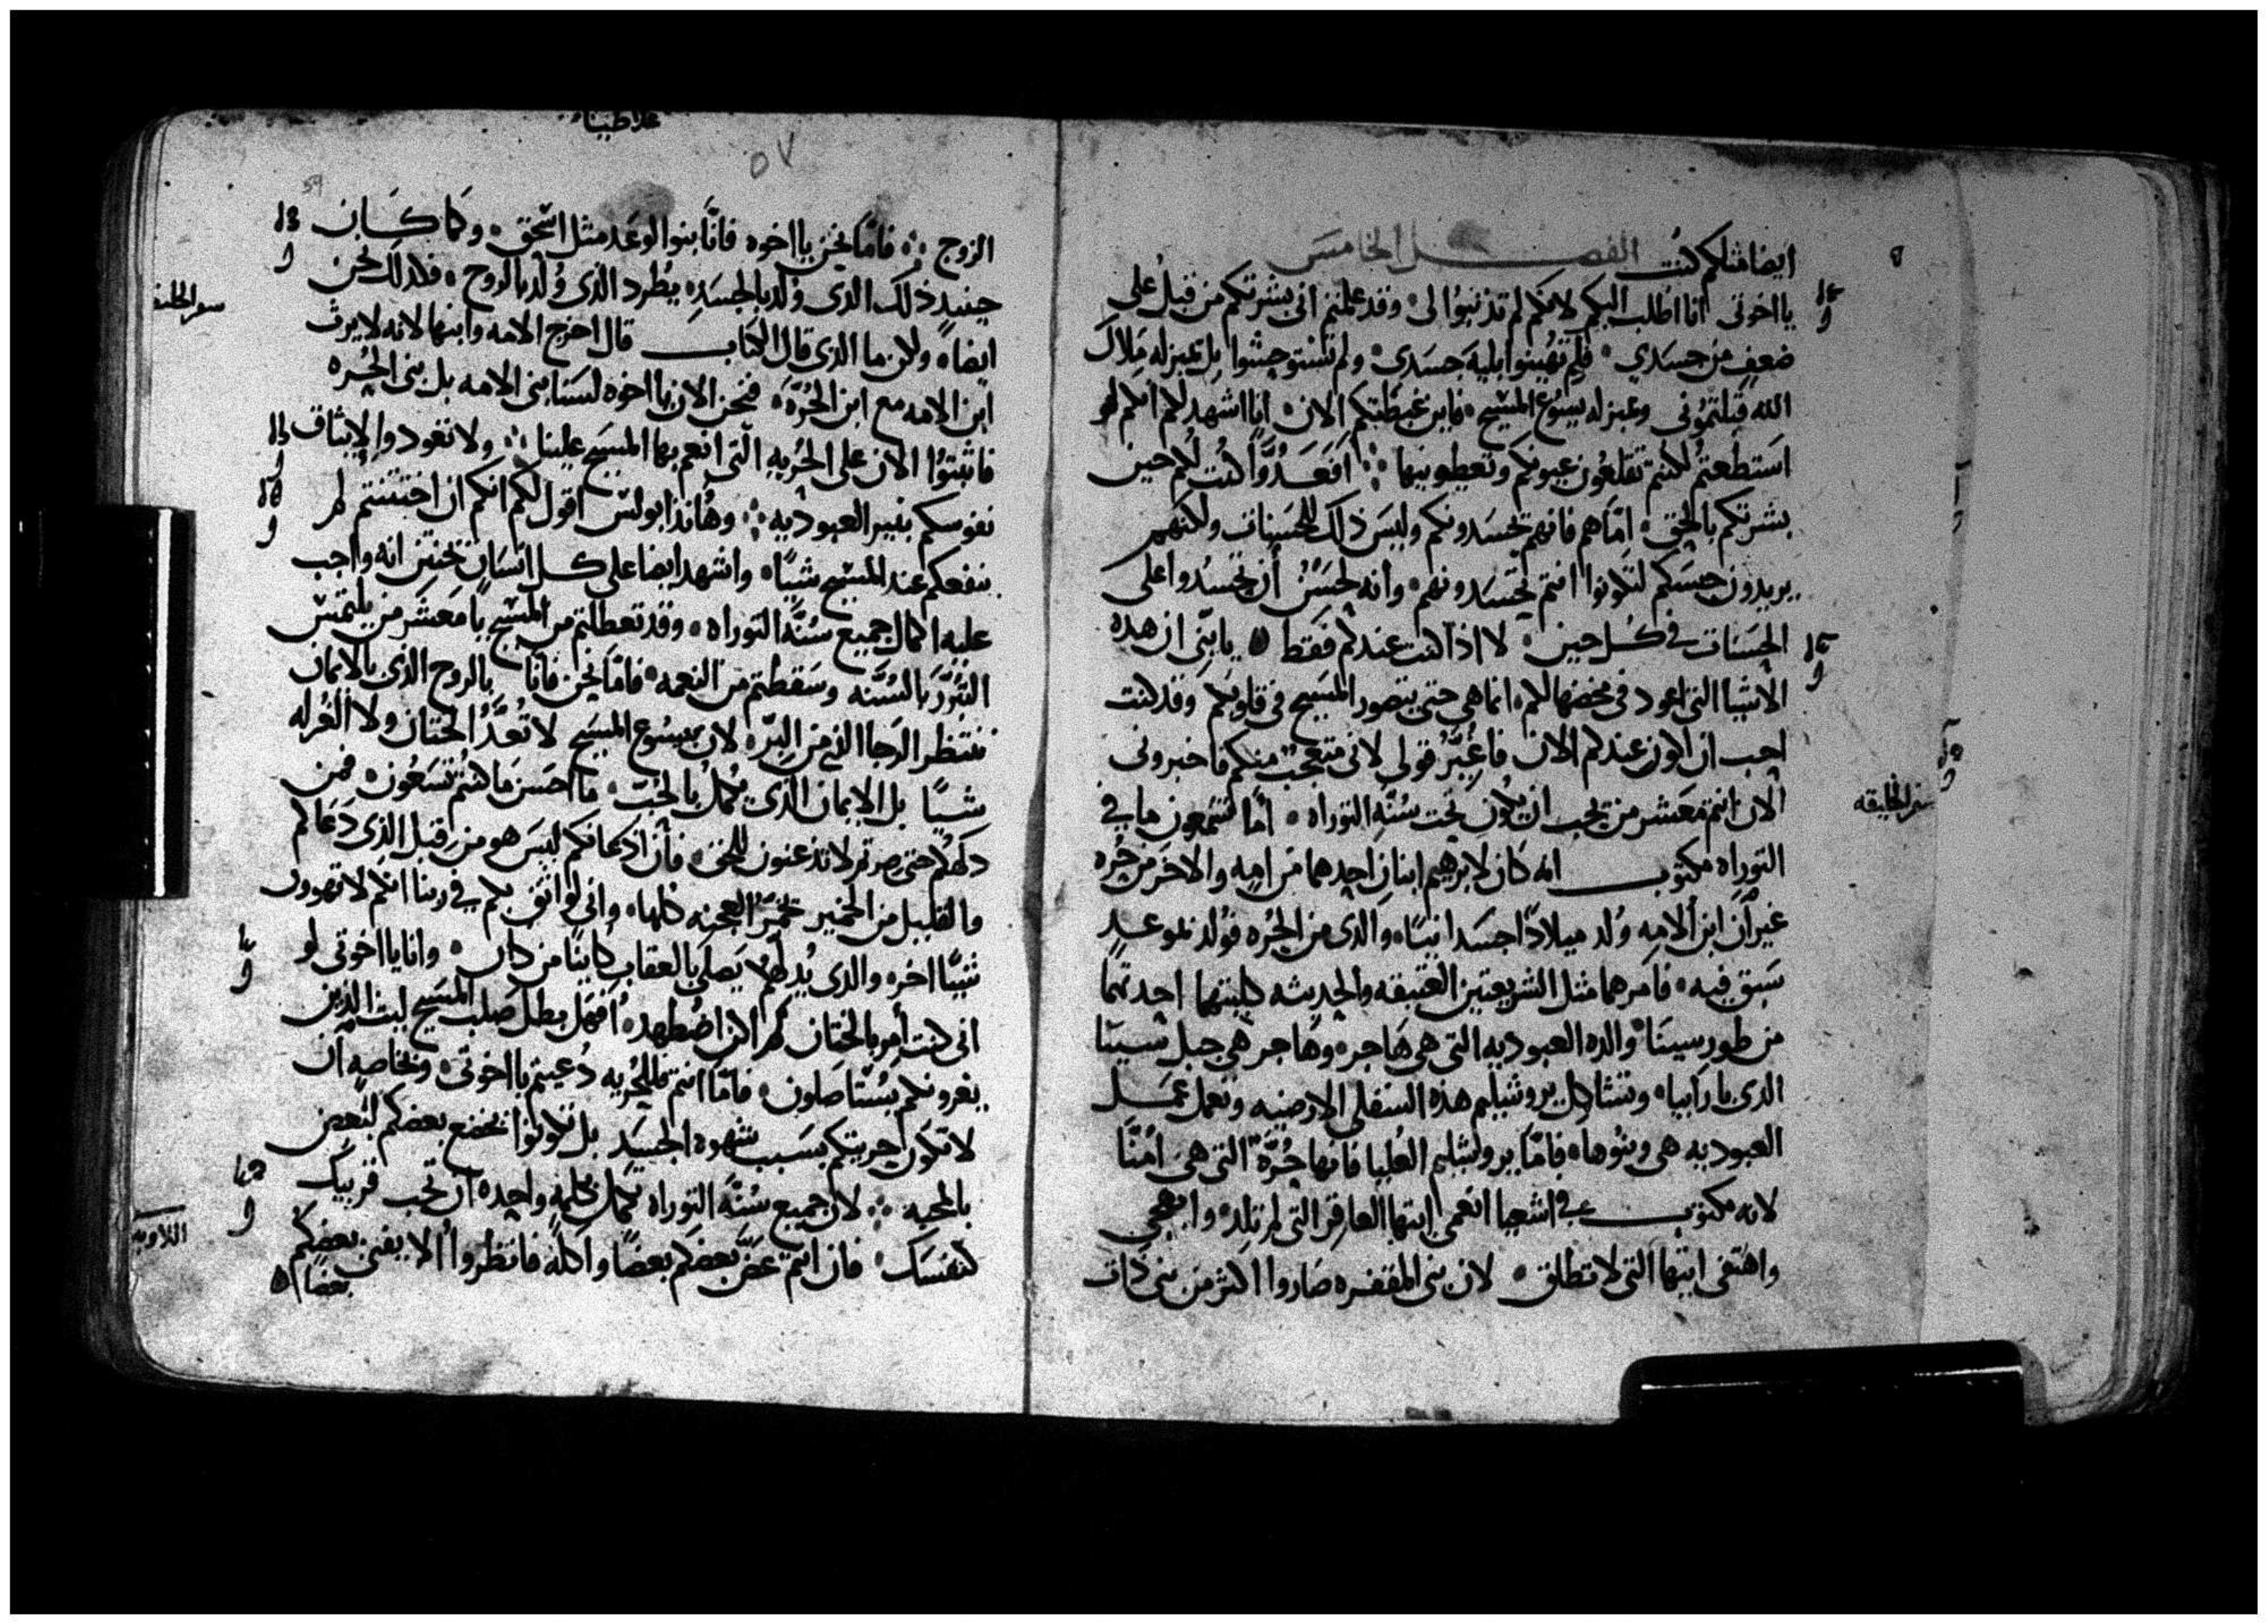 ايضا مثلكم كنت الفصل الخامس
يا اخوتي انا اطلب اليكم لانكم لم تذنبوا لى وقد علمتم انى بشرتكم من قبل على
ضعف من جسدي فلم تهينوا بلية جسدى ولم تستوحشوا بل بمنزله ملاك
الله قبلتموني وبمنزله يسوع المسيح فاين غبطتكم الان انا اشهد لكم انكم لو
استطعتم لكنتم تقلعون عيونكم وتعطونيها افعدوا كنت لكم حين
بشرتكم بالحق اما هم فانهم يحسدونكم وليس ذلك للحسنات ولكنهم
يريدون حبسكم لتكونوا انتم تحسدونهم وانه لحسن أن تحسدوا على
الحسنات في كل حين لا اذا كنت عندكم فقط يا بني ان هذه
الاشيا التى اعود في مخضها لكم انما هي حتى يتصور المسيح في قلوبكم وقد كنت
احب ان اكون عندكم الان فاغير قولي لانى متعجب منكم فاخبرونى
الان انتم معشر من يحب ان يكون تحت سنة التوراه أما تسمعون ما في
التوراه مكتوب انه كان لابرهيم ابنان احدهما من امه والاخر من حره
غير أن ابن الامه ولد ميلادا جسدانيا والذى من الحره فولد بموعد
سبق فيه فامرهما مثل الشريعتين العتيقه والحديثه كليتهما احدتهما
من طور سينا والده العبوديه التى هي هاجر وهاجر هي جبل سينا
الذى بارابيا وتشاكل يروشليم هذه السفلى الارضيه وتعمل عمل
العبوديه هى وبنوها فاما يروشليم العليا فانها حرة التى هى امنا
لانه مكتوب في اشعيا انعمى ايتها العاقر التى لم تلد وابتهجي
واهتفى ايتها التى لا تطلق لان بنى المقفره صاروا اكثر من بنى ذات
سفر الخليقه
غلاطيا
٥٧
الزوج فاما نحن يا اخوه فانا بنوا الوعد مثل اسحق وكما كان
حينيذ ذلك الذى ولد بالجسد يطرد الذى ولد بالروح فكذلك نحن
ايضا ولكن ما الذى قال الكتاب قال اخرج الامه وابنها لانه لا يرث
ابن الامه مع ابن الحرة فنحن الان يا اخوه لسنا بنى الامه بل بنى الحره
فاثبتوا الان على الحريه التى انعم بها المسيح علينا ولا تعودوا لايثاق
نفوسكم بنير العبوديه وهانذا بولس اقول لكم انكم ان اختتنتم لم
ينفعكم عند المسيح شيئا واشهد ايضا على كل انسان يختتن انه واجب
عليه اكمال جميع سنة التوراه وقد تعطلتم من المسيح يا معشر من يلتمس
التبرر بالسنه وسقطتم من النعمه فاما نحن فانا بالروح الذى بالايمان
ننتظر الرجا الذى من البر لان بيسوع المسيح لا تعد الختان ولا الغرله
شيئا بل الايمان الذي يكمل بالحب ما احسن ما كنتم تسعون فمن
دلهكم حتى صرتم لا تذعنون للحق فأن اذعانكم ليس هو من قبل الذي دعاكم
والقليل من الخمير تخمر العجنه كلها وانى لواثق بكم في ربنا انكم لا تهوون
شيئا اخر والذى يدلهكم يصلى بالعقاب كاينا من كان وانا يا اخوتى لو
انى كنت أمر بالختان لم اكن اضطهد أفهل بطل صلب المسيح ليت الذين
يغرونكم يستاصلون فاما انتم فللحريه دعيتم يا اخوتى وبخاصه ان
لا تكون حريتكم بسبب شهوه الجسد بل تكونوا يخضع بعضكم لبعض
بالمحبه لان جميع سنة التوراه تكمل بكلمه واحده أن تحب قريبك
كنفسك فان انتم عض بعضكم بعضا واكله فانظروا الا يفنى بعضكم
بعضا
سفر الخليقه